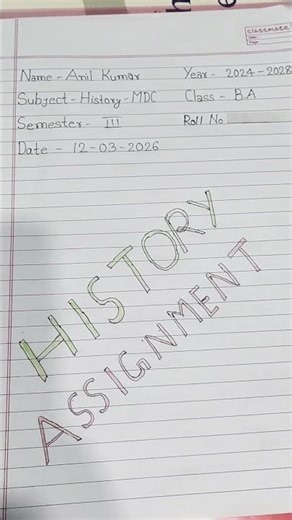 CLASSMATE
Date
Page
Name - Anil Kumar Year - 2024-2028
Subject - History - MDC Class - B.A
Semester - III Roll No
Date - 12-03-2026
HISTORY
ASSIGNMENT